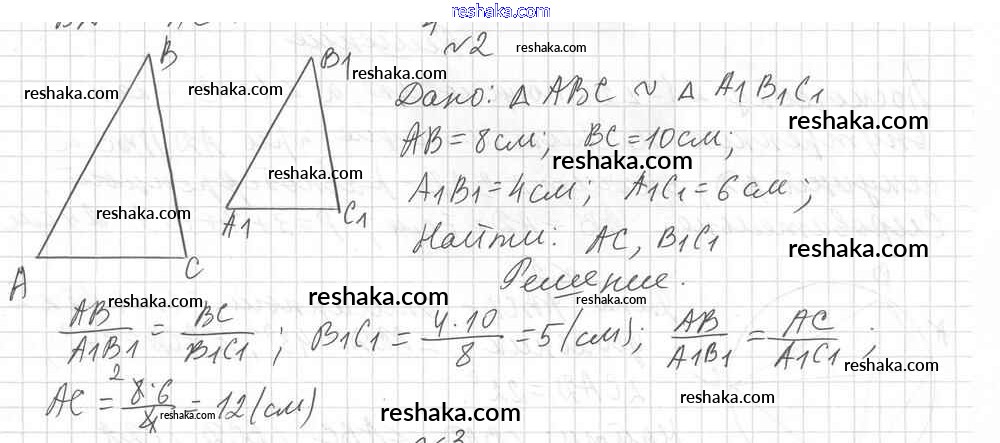 reshaka.com
№2
reshaka.com
B
B1
reshaka.com
reshaka.com
reshaka.com
Дано: △ ABC ~ △ A1B1C1
reshaka.com
AB = 8 см; BC = 10 см;
reshaka.com
reshaka.com
A1B1 = 4 см; A1C1 = 6 см;
reshaka.com
A1
C1
Найти: AC, B1C1
reshaka.com
A
C
Решение.
reshaka.com
reshaka.com
reshaka.com
AB/A1B1 = BC/B1C1; B1C1 = 4·10/8 = 5 (см); AB/A1B1 = AC/A1C1;
reshaka.com
AC = 8·6/4 = 12 (см)
2
reshaka.com
reshaka.com
reshaka.com
№3